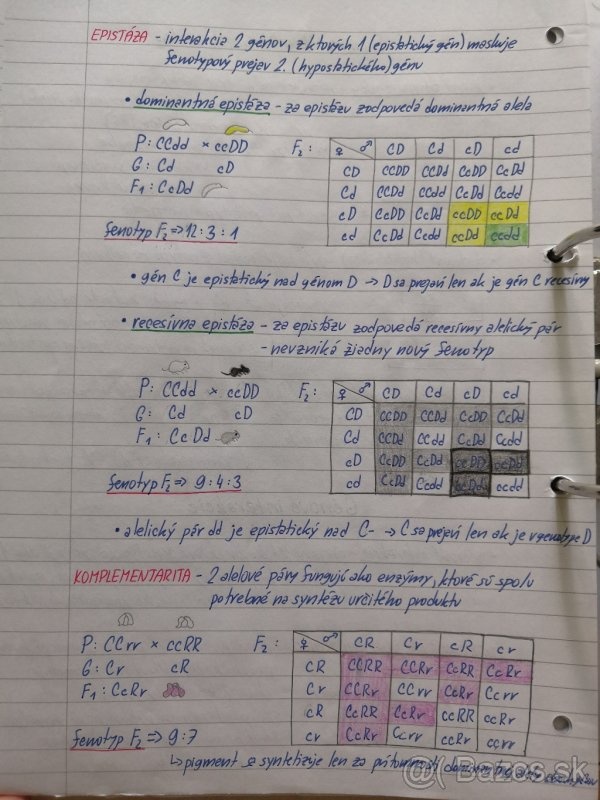 EPISTÁZA - interakcia 2 génov, z ktorých 1 (epistatický gén) maskuje
fenotypový prejav 2. (hypostatického) génu
• dominantná epistáza - za epistázu zodpovedá dominantná alela
P: CCdd × ccDD
G: Cd cD
F1: CcDd
F2: ♀ ♂ CD Cd cD cd
CD CCDD CCDd CcDD CcDd
Cd CCDd CCdd CcDd Ccdd
cD CcDD CcDd ccDD ccDd
cd CcDd Ccdd ccDd ccdd
fenotyp F2 => 12:3:1
• gén C je epistatický nad génom D → D sa prejaví len ak je gén C recesívny
• recesívna epistáza - za epistázu zodpovedá recesívny alelický pár
- nevzniká žiadny nový fenotyp
P: CCdd × ccDD
G: Cd cD
F1: CcDd
F2: ♀ ♂ CD Cd cD cd
CD CCDD CCDd CcDD CcDd
Cd CCDd CCdd CcDd Ccdd
cD CcDD CcDd ccDD ccDd
cd CcDd Ccdd ccDd ccdd
fenotyp F2 => 9:4:3
• alelický pár dd je epistatický nad C- → C sa prejaví len ak je v genotype D
KOMPLEMENTARITA - 2 alelové páry fungujú ako enzýmy, ktoré sú spolu
potrebné na syntézu určitého produktu
P: CCrr × ccRR
G: Cr cR
F1: CcRr
F2: ♀ ♂ CR Cr cR cr
CR CCRR CCRr CcRR CcRr
Cr CCRr CCrr CcRr Ccrr
cR CcRR CcRr ccRR ccRr
cr CcRr Ccrr ccRr ccrr
fenotyp F2 => 9:7
↳ pigment sa syntetizuje len za prítomnosti
Bazos.sk